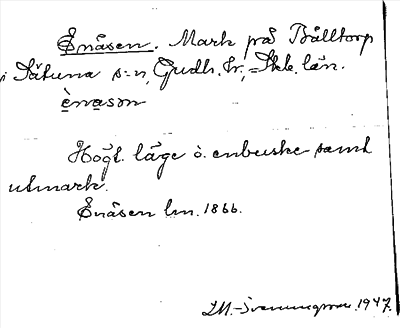 Enåsen. Mark på Bålltorp
i Såtuna s-n, Gudh. hr, Skb. län.
ènason
Högt läge o. enbuske- samt
utmark.
Enåsen lm. 1866.
1947.